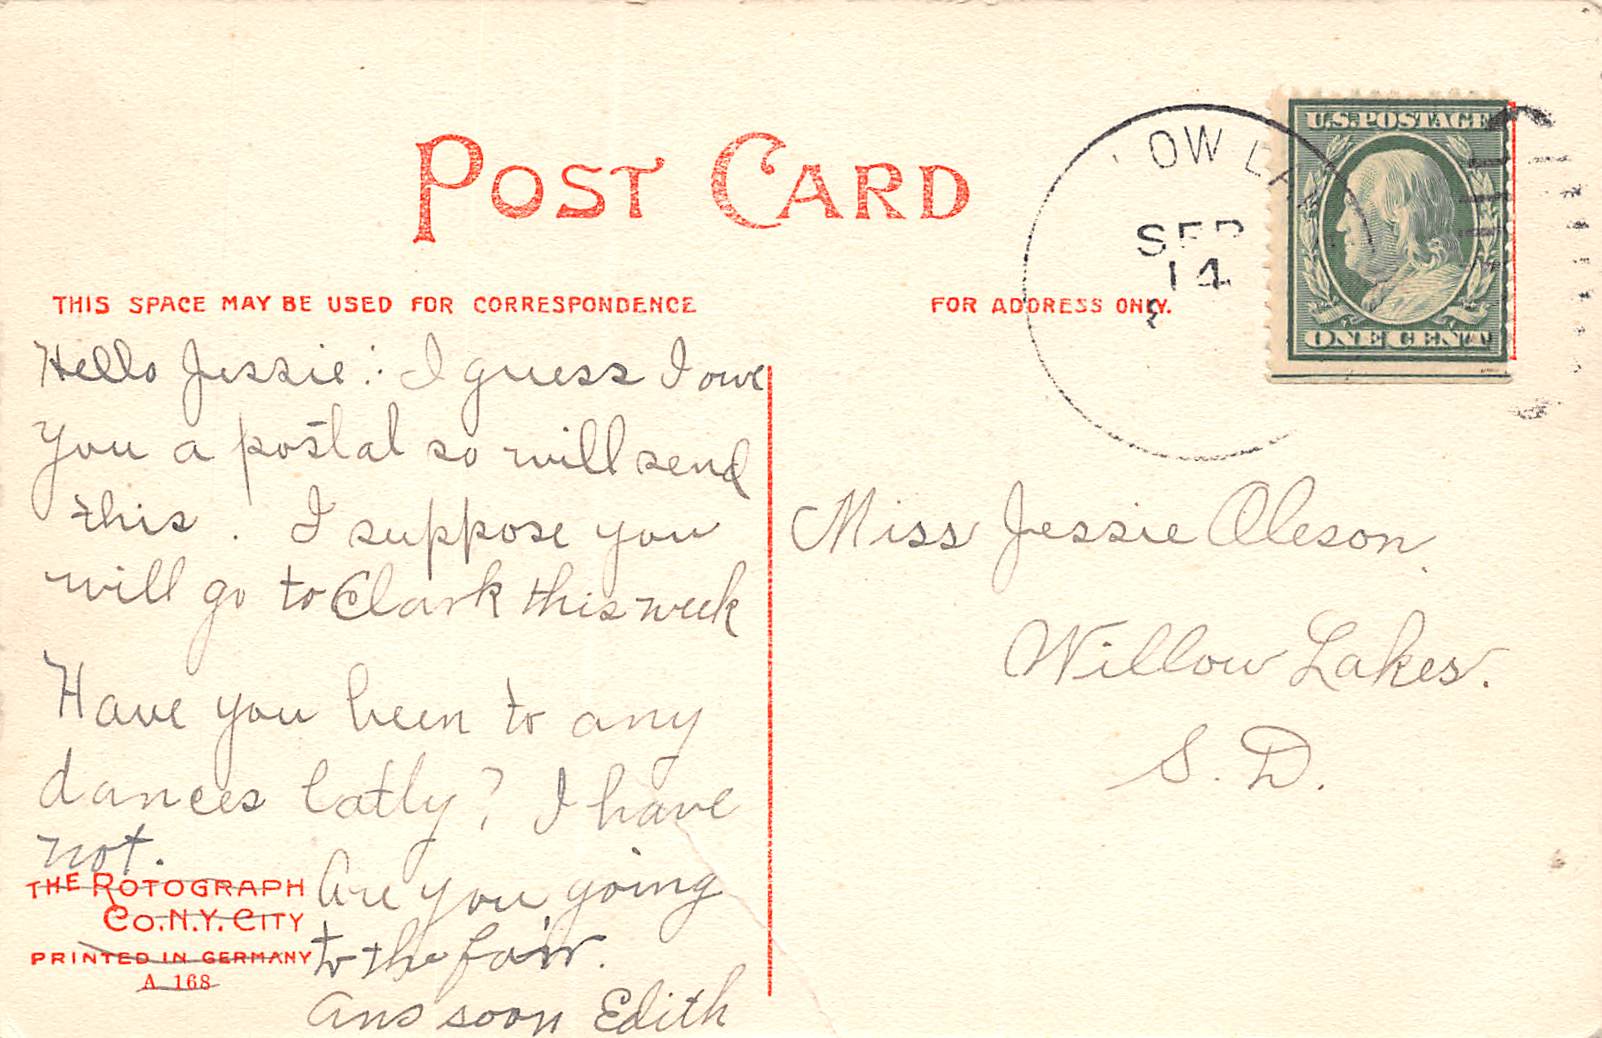 POST CARD
THIS SPACE MAY BE USED FOR CORRESPONDENCE
FOR ADDRESS ONLY.
OW LA
SEP
14
U.S. POSTAGE
ONE CENT
Hello Jessie: I guess I owe
you a postal so will send
this. I suppose you
will go to Clark this week
Have you been to any
dances latly? I have
not.
Are you going
to the fair.
Ans soon Edith
THE ROTOGRAPH
CO. N.Y. CITY
PRINTED IN GERMANY
A 168
Miss Jessie Oleson.
Willow Lakes.
S. D.